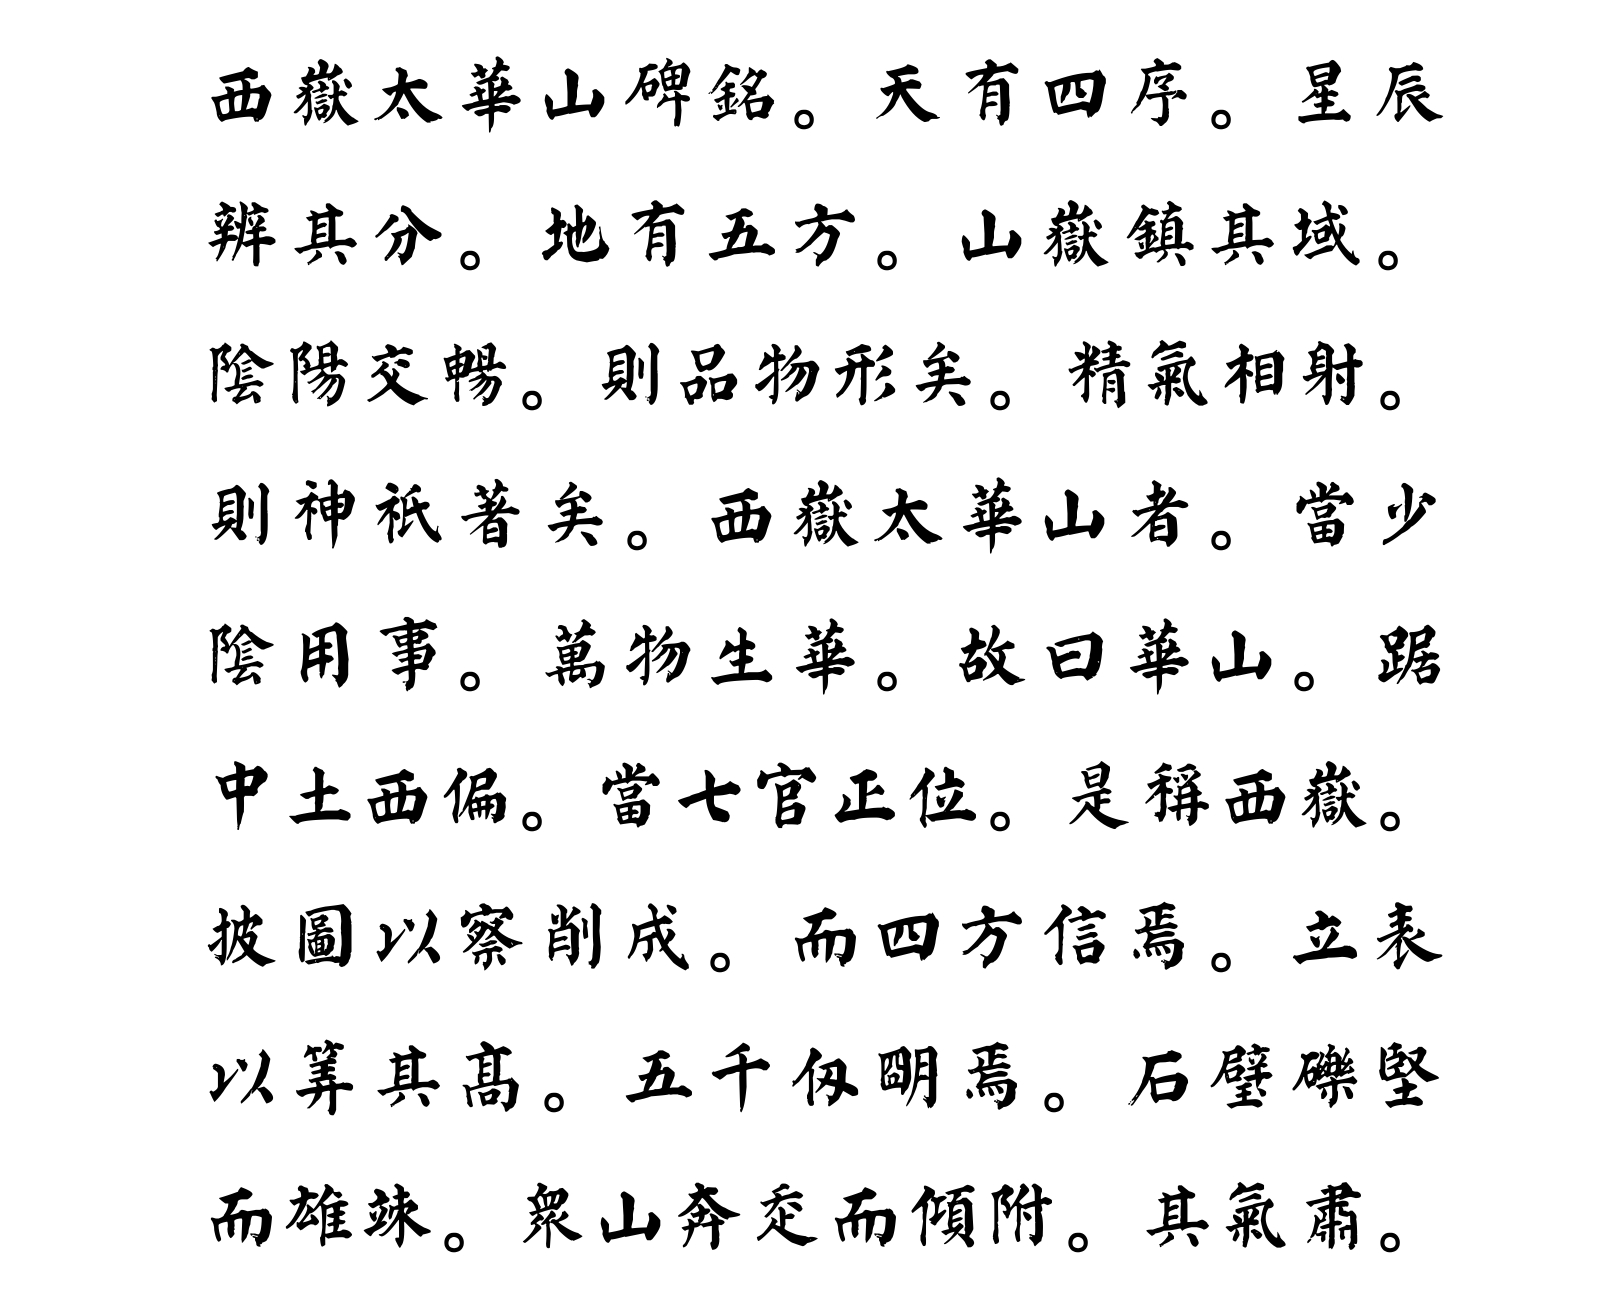 西嶽太華山碑銘。天有四序。星辰
辨其分。地有五方。山嶽鎮其域。
陰陽交暢。則品物形矣。精氣相射。
則神祇著矣。西嶽太華山者。當少
陰用事。萬物生華。故曰華山。踞
中土西偏。當七宫正位。是稱西嶽。
披圖以察削成。而四方信焉。立表
以筭其髙。五千仭朙焉。石壁礫堅
而雄竦。衆山奔歨而傾附。其氣肅。